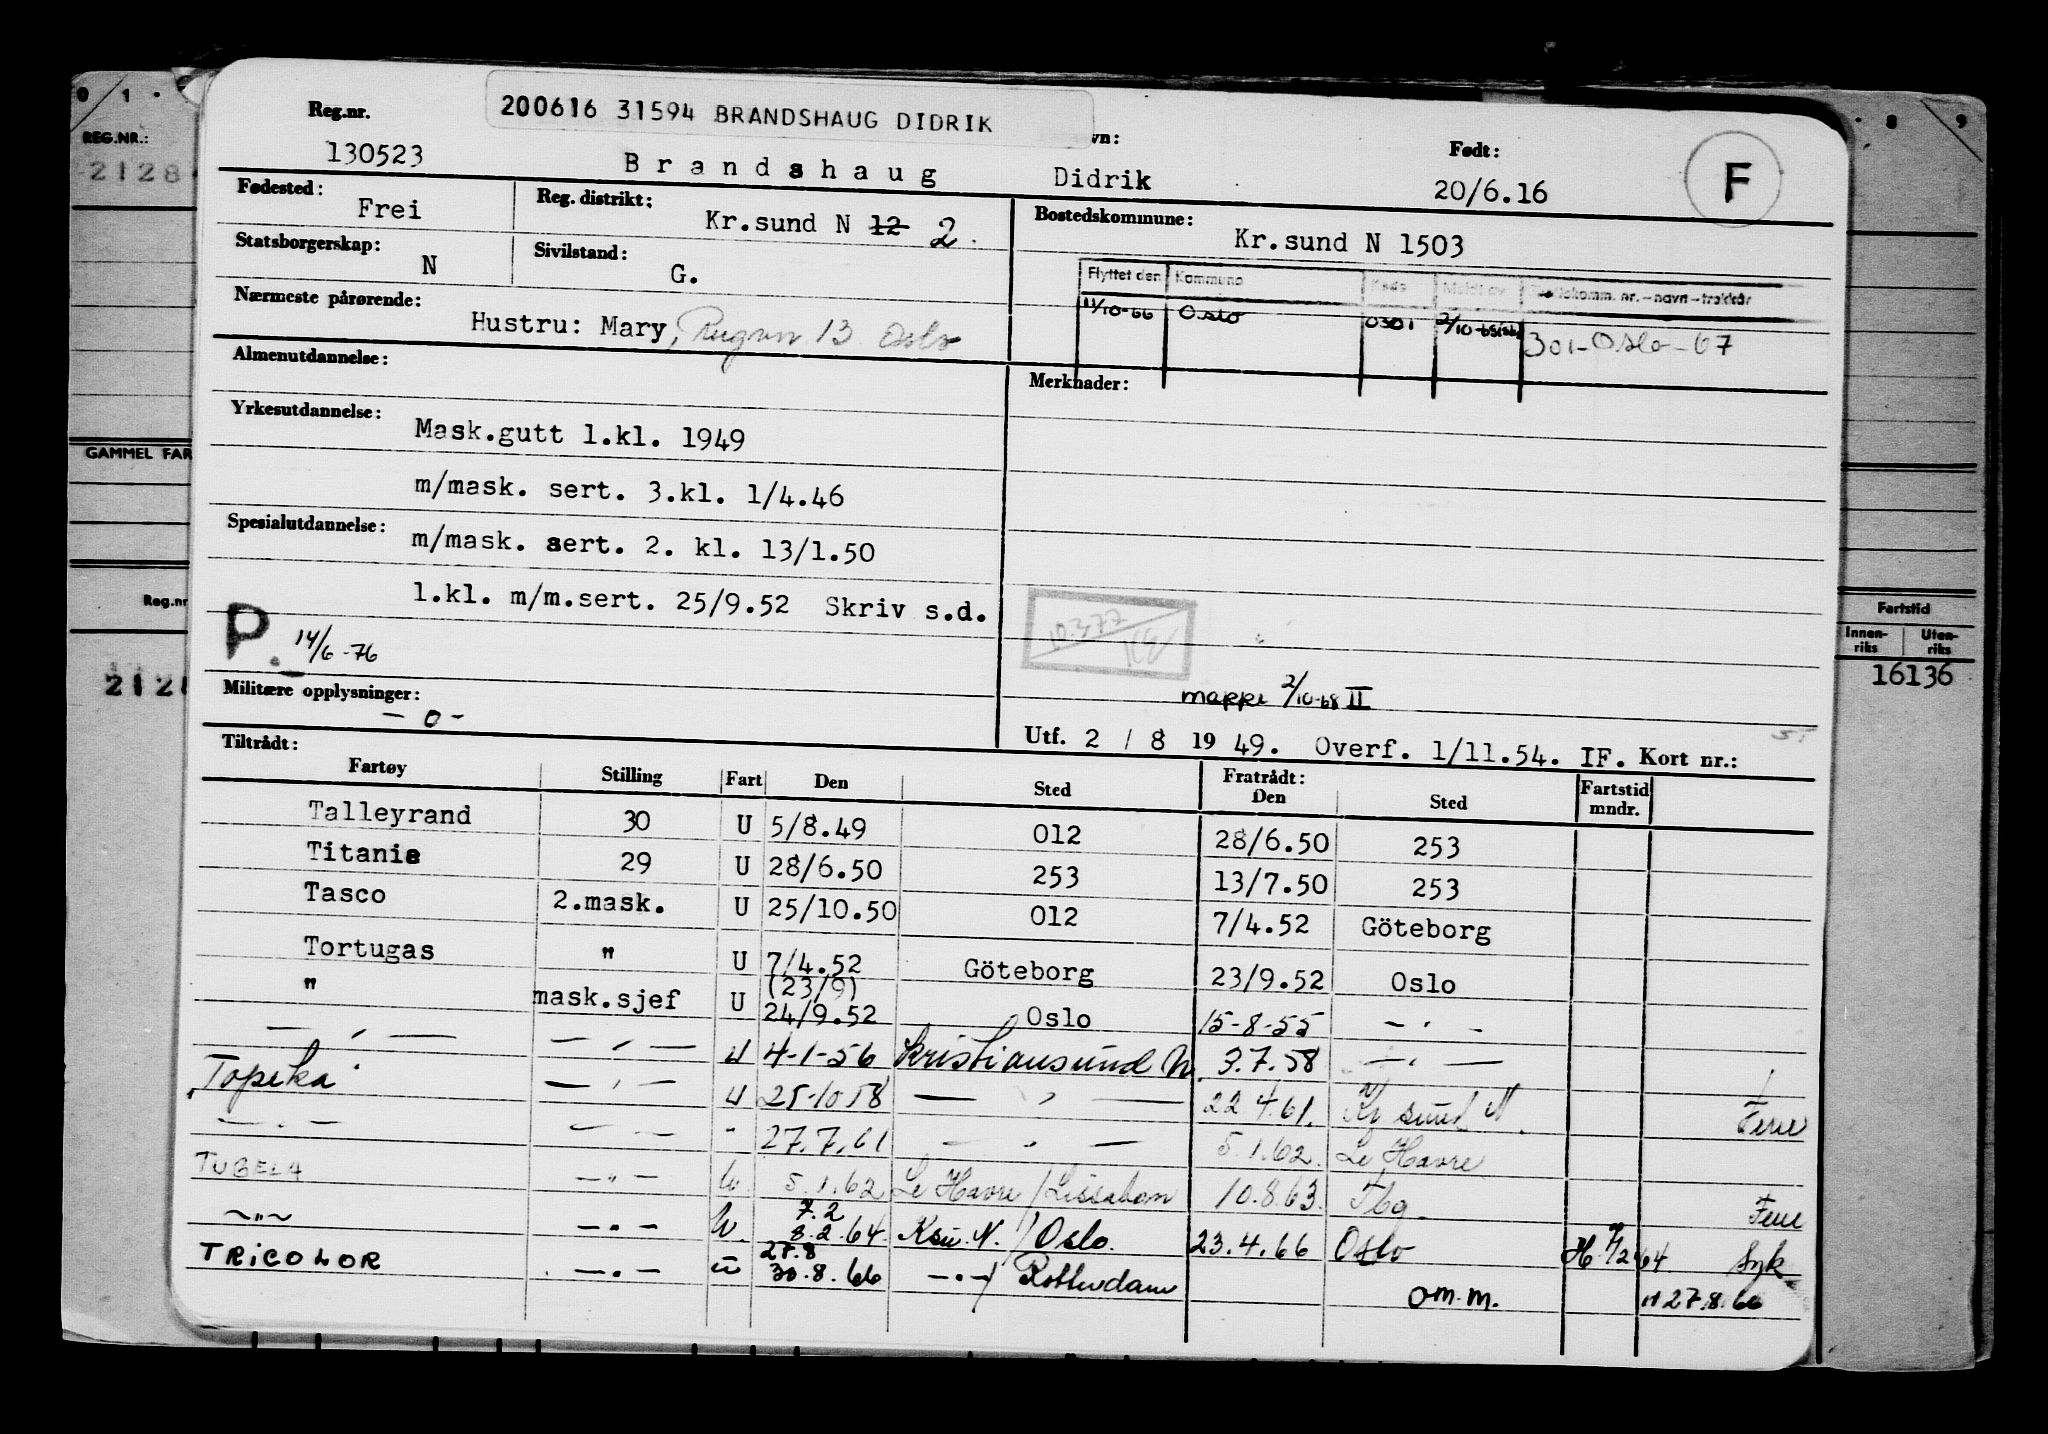 0 1 . 8 9
REG.NR.:
2128
GAMMEL FAR
Reg.nr
212
Fartstid
Innen-riks Uten-riks
16136
200616 31594 BRANDSHAUG DIDRIK
Reg.nr. vn: Født:
130523 Brandshaug Didrik 20/6.16 F
Fødested: Frei Reg. distrikt: Kr.sund N 12 2. Bostedskommune: Kr.sund N 1503
Statsborgerskap: N Sivilstand: G.
Flyttet den Kommune Kode Meldt av komm. nr.-navn-trekkår
11/10-66 Oslo 0301 301-Oslo-67
Nærmeste pårørende: Hustru: Mary, 13 Oslo
Almenutdannelse: Merknader:
Yrkesutdannelse: Mask.gutt 1.kl. 1949
m/mask. sert. 3.kl. 1/4.46
Spesialutdannelse: m/mask. sert. 2. kl. 13/1.50
1.kl. m/m.sert. 25/9.52 Skriv s.d.
P. 14/6-76
10.3.77
mappe 2/10-68 II
Militære opplysninger: -0-
Utf. 2 / 8 19 49. Overf. 1/11.54. IF. Kort nr.:
Tiltrådt: Fratrådt:
Fartøy Stilling Fart Den Sted Den Sted Fartstid mndr.
Talleyrand 30 U 5/8.49 012 28/6.50 253
Titania 29 U 28/6.50 253 13/7.50 253
Tasco 2.mask. U 25/10.50 012 7/4.52 Göteborg
Tortugas " U 7/4.52 Göteborg 23/9.52 Oslo
" mask.sjef U (23/9) 24/9.52 Oslo 15-8-55 - " -
- " - - " - U 4-1-56 Kristiansund N. 3.7.58 - " -
Topeka - " - U 25-10 58 - " - 22 4.61. Kr sund N. Ferie
- " - - " - " 27.7.61 - " - 5.1.62. Le Havre
TUBELA - " - U. 5.1.62 Le Havre / Lissabon 10.8.63. Tbg. Ferie
- " - - " - U. 7.2 8.2.64. Ksu. N. / Oslo. 23.4.66 Oslo Syk
TRICOLOR - " - U 27.8 30.8.66 - " - / Rotterdam om.m. 27.8.66